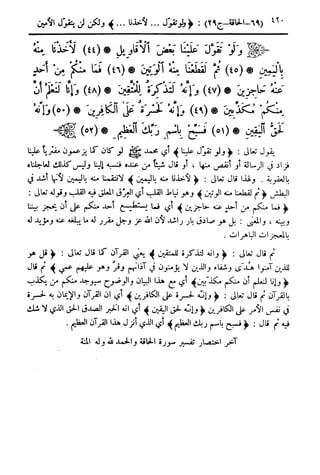 ٤٢٠ (٦٩-الحاقة-ج٢٩) : ﴿ ولو تقول ... لأخذنا ... ﴾ ولكن لن يتقول الأمين
﴿ وَلَوْ تَقَوَّلَ عَلَيْنَا بَعْضَ الْأَقَاوِيلِ ﴿٤٤﴾ لَأَخَذْنَا مِنْهُ
بِالْيَمِينِ ﴿٤٥﴾ ثُمَّ لَقَطَعْنَا مِنْهُ الْوَتِينَ ﴿٤٦﴾ فَمَا مِنْكُم مِّنْ أَحَدٍ
عَنْهُ حَاجِزِينَ ﴿٤٧﴾ وَإِنَّهُ لَتَذْكِرَةٌ لِّلْمُتَّقِينَ ﴿٤٨﴾ وَإِنَّا لَنَعْلَمُ أَنَّ
مِنكُم مُّكَذِّبِينَ ﴿٤٩﴾ وَإِنَّهُ لَحَسْرَةٌ عَلَى الْكَافِرِينَ ﴿٥٠﴾ وَإِنَّهُ
لَحَقُّ الْيَقِينِ ﴿٥١﴾ فَسَبِّحْ بِاسْمِ رَبِّكَ الْعَظِيمِ ﴿٥٢﴾ ﴾
يقول تعالى : ﴿ ولو تقول علينا ﴾ أي محمد ﷺ لو كان كما يزعمون مفترياً علينا
فزاد في الرسالة أو أنقص منها ، أو قال شيئاً من عنده فنسبه إلينا وليس كذلك لعاجلناه
بالعقوبة . ولهذا قال تعالى : ﴿ لأخذنا منه باليمين ﴾ لانتقمنا منه باليمين لأنها أشد في
البطش ﴿ ثم لقطعنا منه الوتين ﴾ وهو نياط القلب أي العرق المعلق فيه القلب وقوله تعالى :
﴿ فما منكم من أحد عنه حاجزين ﴾ أي فما يستطيع أحد منكم على أن يحجز بيننا
وبينه ، والمعنى : بل هو صادق بار راشد لأن الله عز وجل مقرر له ما يبلغه عنه ومؤيد له
بالمعجزات الباهرات .
ثم قال تعالى : ﴿ وإنه لتذكرة للمتقين ﴾ يعني القرآن كما قال تعالى : ﴿ قل هو
للذين آمنوا هدى وشفاء والذين لا يؤمنون في آذانهم وقر وهو عليهم عمى ﴾ ثم قال
﴿ وإنا لنعلم أن منكم مكذبين ﴾ أي مع هذا البيان والوضوح سيوجد منكم من يكذب
بالقرآن ثم قال تعالى : ﴿ وإنه لحسرة على الكافرين ﴾ أي ان القرآن والإيمان به لحسرة
في نفس الأمر على الكافرين ﴿ وإنه لحق اليقين ﴾ أي انه الخبر الصدق الحق الذي لا شك
فيه ثم قال : ﴿ فسبح باسم ربك العظيم ﴾ أي الذي أنزل هذا القرآن العظيم .
آخر اختصار تفسير سورة الحاقة والحمد لله وله المنة